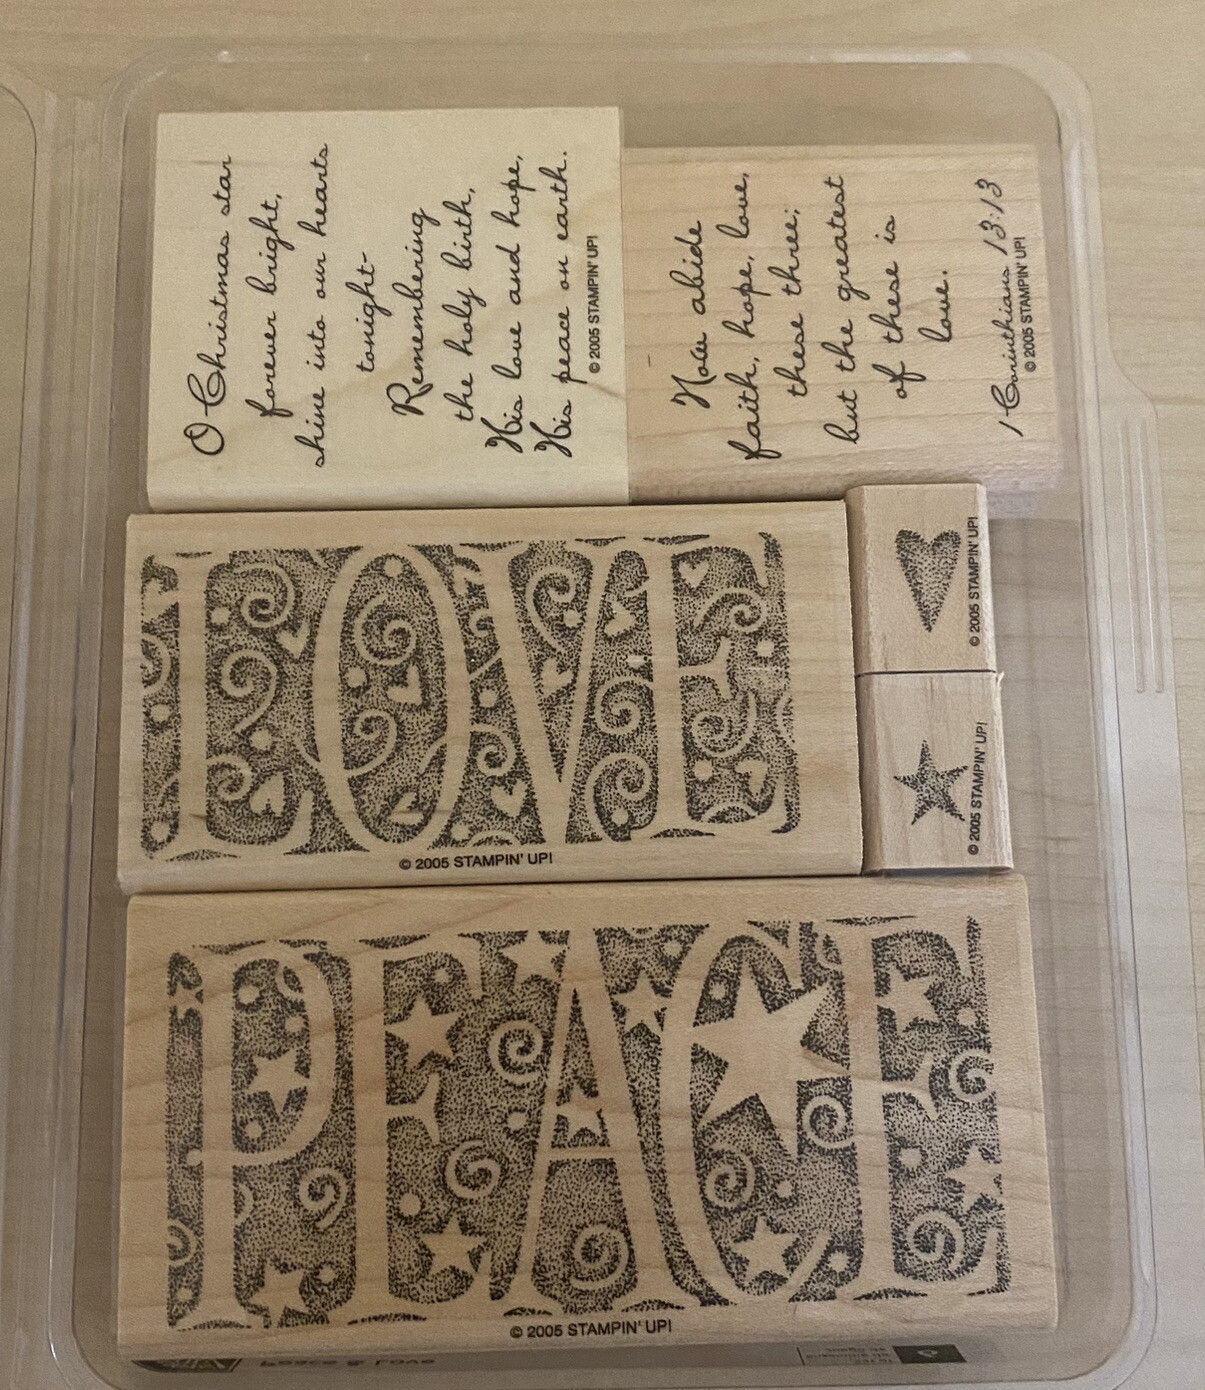 O Christmas star
forever bright,
shine into our hearts
tonight-
Remembering
the holy birth,
His love and hope,
His peace on earth.
© 2005 STAMPIN' UP!
Now abide
faith, hope, love,
these three;
but the greatest
of these is
love.
1 Corinthians 13:13
© 2005 STAMPIN' UP!
LOVE
© 2005 STAMPIN' UP!
© 2005 STAMPIN' UP!
© 2005 STAMPIN' UP!
PEACE
© 2005 STAMPIN' UP!
Peace & Love